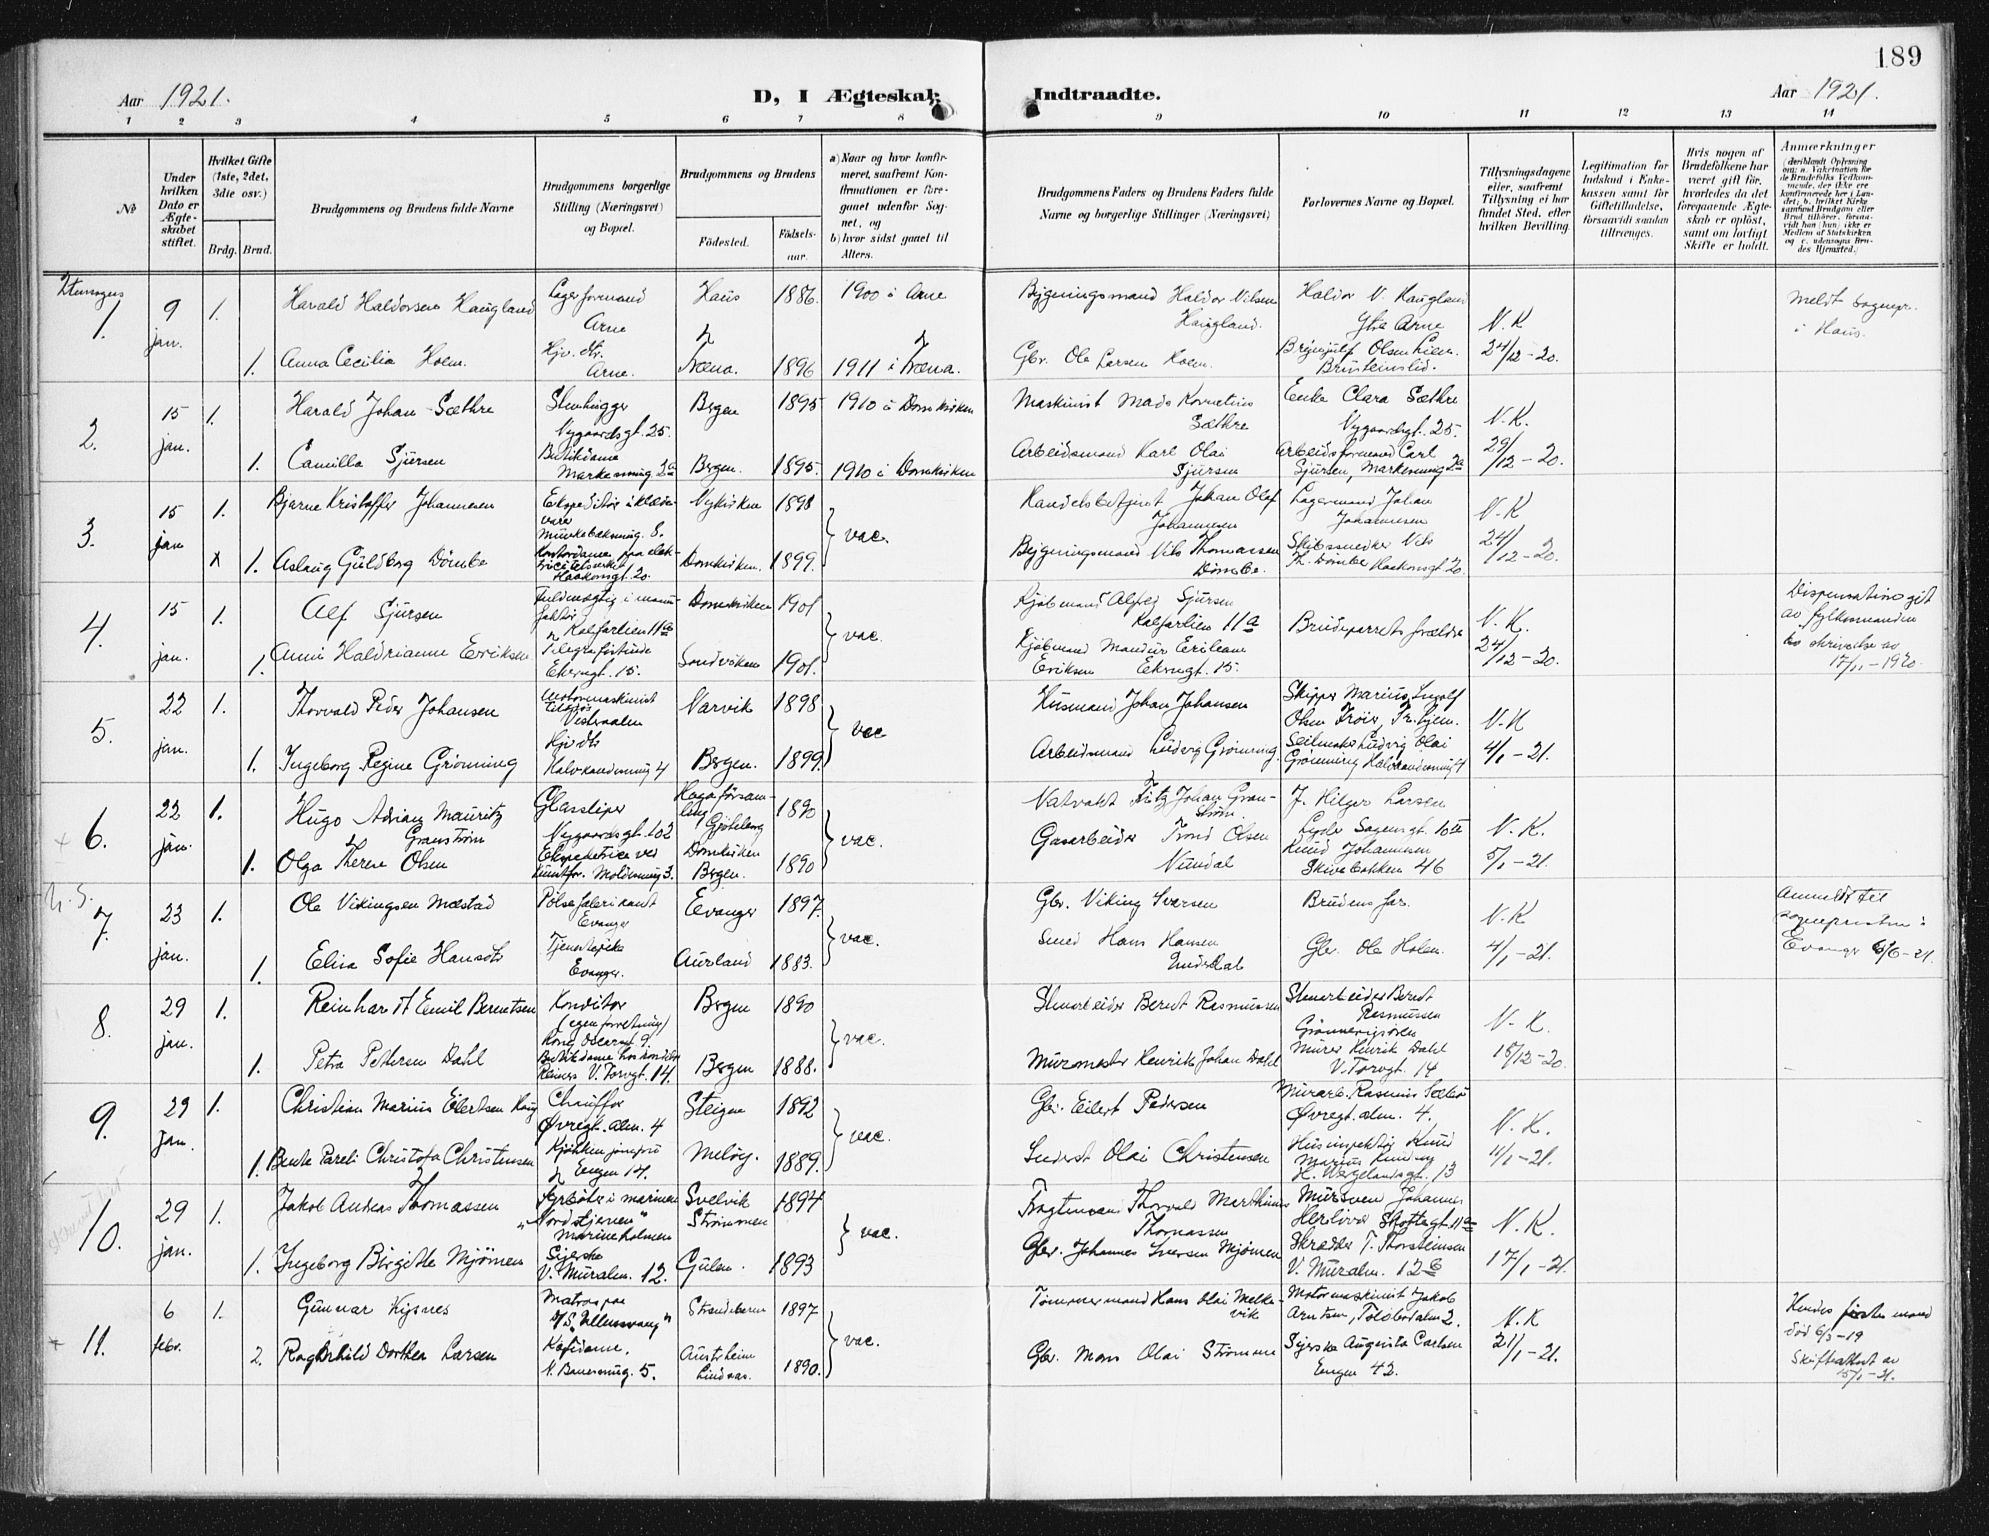 189
Aar 1921.
D, I Ægteskab
Indtraadte.
Aar 1921.
1 2 3 4 5 6 7 8 9 10 11 12 13 14
№
Under hvilken Dato er Ægteskabet stiftet.
Hvilket Gifte (1ste, 2det, 3die osv.)
Brdg. Brud.
Brudgommens og Brudens fulde Navne
Brudgommens borgerlige Stilling (Næringsvei) og Bopæl.
Brudgommens og Brudens
Födested.
Födselsaar.
a) Naar og hvor konfirmeret, saafremt Konfirmationen er foregaaet udenfor Sognet, og
b) hvor sidst gaaet til Alters.
Brudgommens Faders og Brudens Faders fulde Navne og borgerlige Stillinger (Næringsvei)
Forlovernes Navne og Bopæl.
Tillysningsdagene eller, saafremt Tillysning ei har fundet Sted, efter hvilken Bevilling.
Legitimation for Indskud i Enkekassen samt for Giftetilladelse, forsaavidt saadan tiltrænges.
Hvis nogen af Brudefolkene har været gift før, hvorledes da det foregaaende Ægteskab er opløst, samt om lovligt Skifte er holdt.
Anmærkninger
1. 9 jan. 1. Harald Haldorsen Haugland Lagerformand Arne Haus 1886. 1900 i Arne
Bygningsmand Haldor Nilsen Haugland. Haldor N. Haugland Ytre Arne N.K 24/12-20. Meldt sognepr. i Haus.
1. Anna Cecilia Holm. Hjv. dtr. Arne. Træna. 1896 1911 i Træna.
Gbr. Ole Larsen Holm. Brynjulf Olsen Lien.
2. 15 jan. 1. Harald Johan Sæthre Stenhugger Nygaardsgt. 25. Bergen 1895 1910 i Domkirken
Maskinist Mads Kornelius Sæthre Enke Clara Sæthre Nygaardsgt. 25. N.K. 29/12-20.
1. Camilla Sjursen Butikdame Markensmug. 2a Bergen. 1895. 1910 i Domkirken
Arbeidsmand Karl Olai Sjursen Arbeidsformand Carl Sjursen, Markensmug 2a
3. 15 jan 1. Bjarne Kristoffer Johannesen Nykirken 1898 vac.
Handelsbetjent Johan Olaf Johannesen Lagermand Johan Johannesen N.K 24/12-20.
x 1. Aslaug Guldborg Dömbe Kontordame paa elektricitetsverket Haakonsgt. 20. Domkirken. 1899.
Bygningsmand Nils Thomassen Dömbe. Skibssnedker Nils Th. Dömbe Haakonsgt. 20.
4. 15 jan. 1. Alf Sjursen Fuldmægtig i manufaktur Kalfarlien 11a Domkirken 1901 vac.
Kjøbmand Alfed Sjursen Kalfarlien 11a Brudeparrets forældre N.K. 24/12-20. Dispensation git av fylkesmanden ved skrivelse av 17/11-1920.
1. Anni Haldrianne Eriksen Telegrafistinde Ekrengt. 15. Sandviken 1901.
Eriksen Ekrengt. 15.
5. 22 jan. 1. Thorvald Peder Johansen Motormaskinist Narvik 1898 vac
Husmand Johan Johansen Skipper Marius Ingolf Olsen Trøie, Tr.hjem. N.K 4/1-21.
1. Ingeborg Regine Grönning Hjv. dtr Halvkandesmug 4 Bergen. 1899.
Arbeidsmand Ludvig Grönning. Seilmaker Ludvig Olai Grönning Halvkandesmug 4
6. 22 jan. 1. Hugo Adrian Mauritz Granström Glassliper Nygaardsgt. 102 Haga församling Göteborg 1890 vac.
Natvakt Fritz Johan Granström J. Hilger Larsen Lyder Sagensgt. 10a N.K. 5/1-21.
1. Olga Therese Olsen Domkirken Bergen. 1890
Gasarbeider Trond Olsen Nundal Knud Johannesen Skivebakken 46
7. 23 jan. 1. Ole Vikingsen Mæstad Pölsefabrikant Evanger Evanger 1897. vac.
Gbr. Viking Iversen Brudens far. N.K 4/1-21. Anmeldt til sognepresten i Evanger 6/6-21.
1. Elisa Sofie Hansdtr Tjenestepike Evanger. Aurland 1883.
Smed Hans Hansen Gbr. Ole Holen.
8. 29 jan. 1. Reinhardt Emil Berntsen Konditor (egen forretning) Kong Oscarsgt. 9. Bergen 1890 vac.
Stenarbeider Berent Rasmussen Stenarbeider Berent Rasmussen N.K. 18/12-20.
1. Petra Pettersen Dahl Butikdame hos konditor Reimers V. Torvgt. 14. Bergen 1888.
Murmester Henrik Johan Dahl Murer Henrik Dahl V. Torvgt. 14
9. 29 jan. 1. Christian Marius Eilertsen Haug Chauffør Øvregt.alm. 4 Steigen 1892 vac.
Gbr. Eilert Pedersen Murarb. Rasmus Øvregt.alm. 4. N.K. 11/1-21.
1. Bente Pareli Christofa Christensen Kjökkenjomfru Engen 14. Melöy. 1889.
Olai Christensen Husinspektör Knud Marius H. Wergelandsgt. 13
10. 29 jan. 1. Jakob Andreas Thomassen Fyrböter i marinen "Nordstjernen" Marineholmen Svelvik Strömmen 1894 vac.
Fragtemand Thorvald Thomassen Mursven Johannes Skottegt. 11a N.K. 17/1-21.
1. Ingeborg Birgitte Mjömen Syerske V. Muralm. 12. Gulen. 1893
Gbr. Johannes Iversen Mjömen Skrædder T. Thorsteinsen V. Muralm. 12b
11. 6 febr. 1. Gunnar Kysnes Matros paa D/S. "Ullensvang" Strandebarm 1897 vac.
Tömmermand Hans Olai Melkevik Motormaskinist Jakob Arntsen, Tolbodalm 2. N.K 21/1-21. Hendes første mand död 6/3-19 Skifteattest av 15/1-21.
2. Raghnhild Dorthea Larsen Kafédame, 5. Austrheim Lindaas. 1890.
Gbr. Mons Olai Strömme Syerske Augusta Carlsen Engen 42.